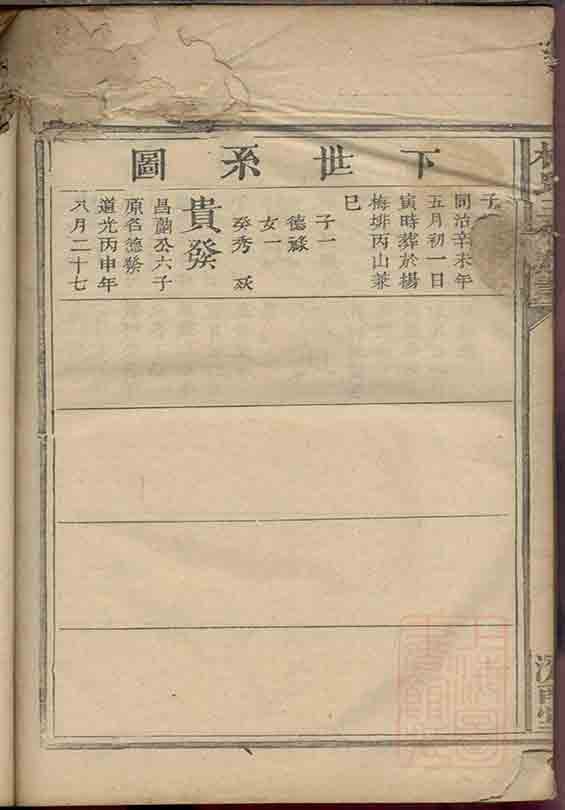 下世系圖
子
同治辛未年
五月初一日
寅時葬於楊
梅排丙山兼
巳
子一
德祿
女一
癸秀 殀
貴發
昌蘭公六子
原名德發
道光丙申年
八月二十七